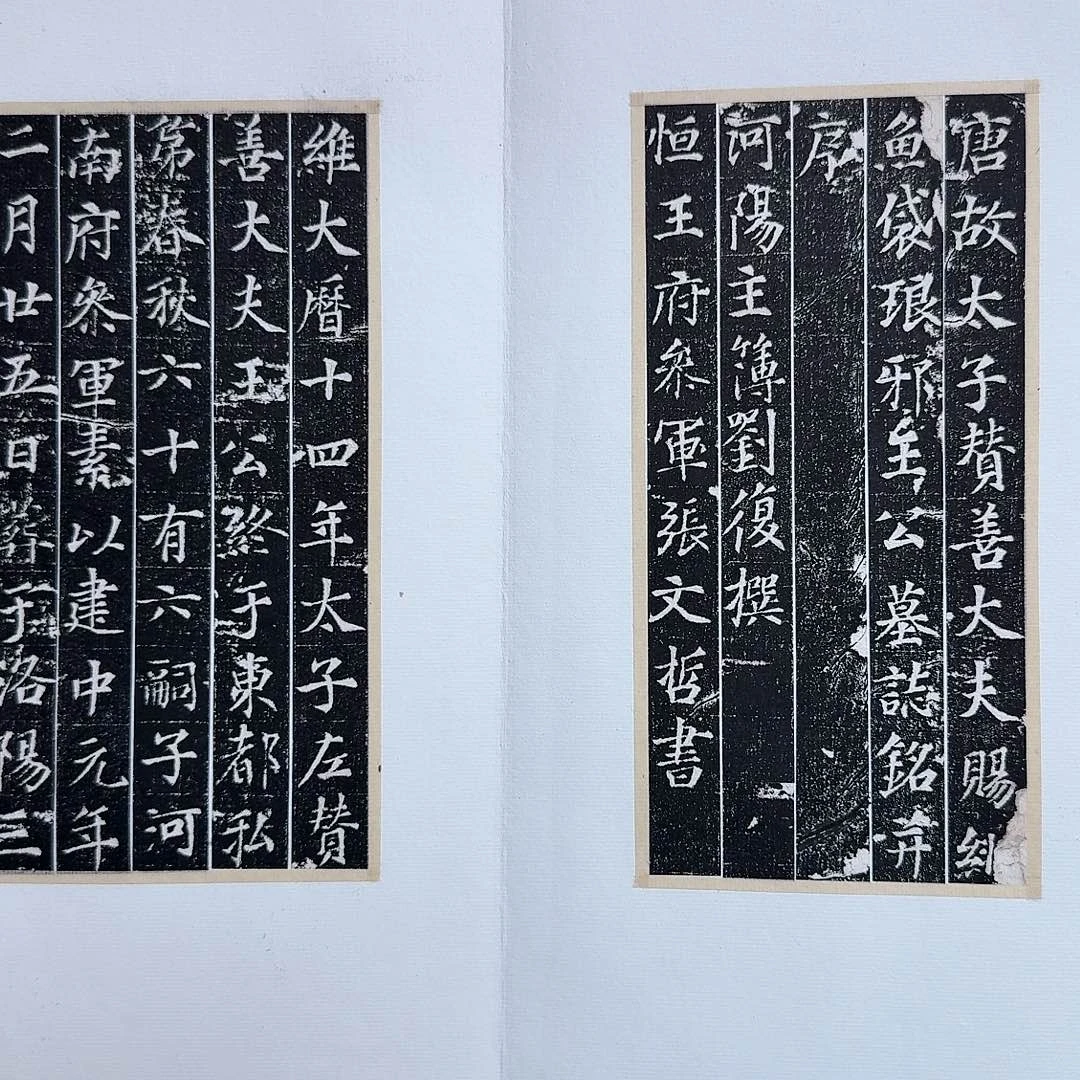 唐故太子賛善大夫賜緋
魚袋琅邪王公墓誌銘并
序
河陽主簿劉復撰
恒王府叅軍張文哲書
維大曆十四年太子左賛
善大夫王公終于東都私
第春秋六十有六嗣子河
南府叅軍素以建中元年
二月廿五日葬于洛陽三